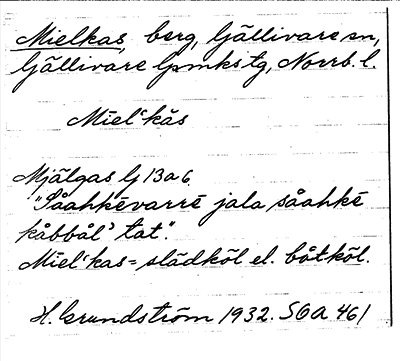 Mielkas, berg, Gällivare sn,
Gällivare lpmks tg, Norrb. l.
Miel'kăs
Mjälgas lj 13a6
"Såahkēvarrē jala såahkē
kåbbål' tat".
Miel'kas = slädköl el. båtköl.
H. Grundström 1932. SGA 461